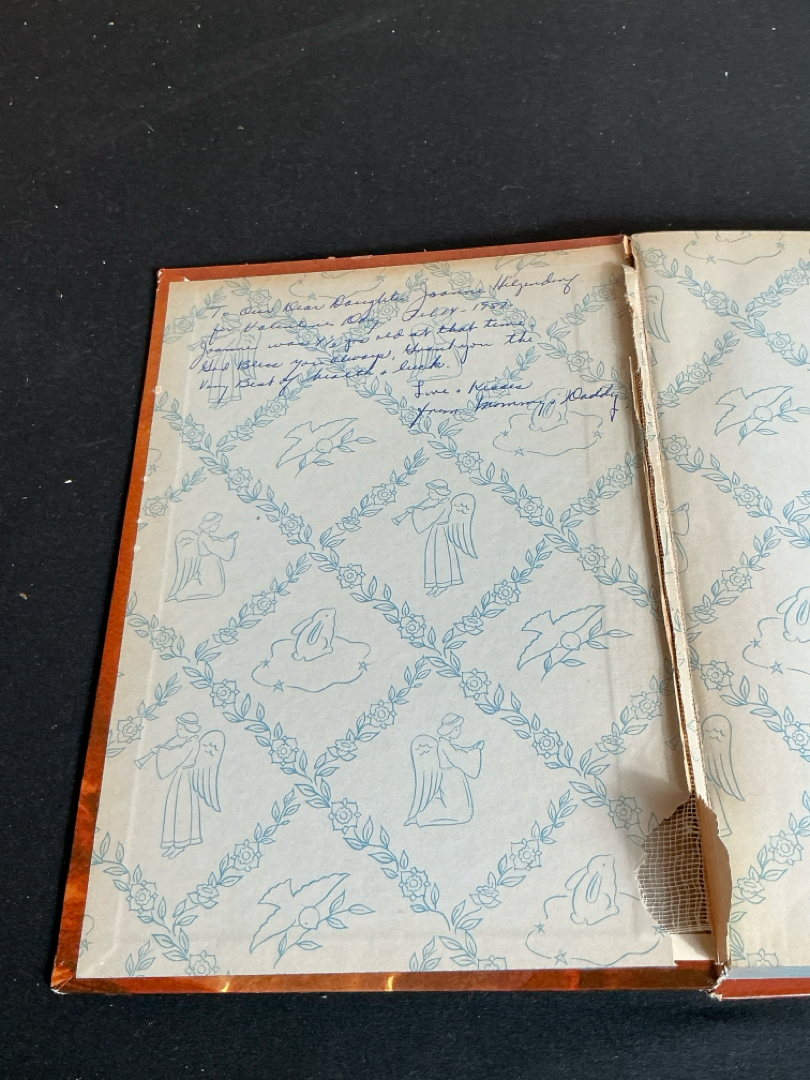 To Our Dear Daughter Joanne Hilgendorf
for Valentines Day Feb 14 - 1957.
Joanne was yrs old at that time.
God Bless you always, Grant you the
Very Best of health & luck.
Love & Kisses
from Mommy & Daddy